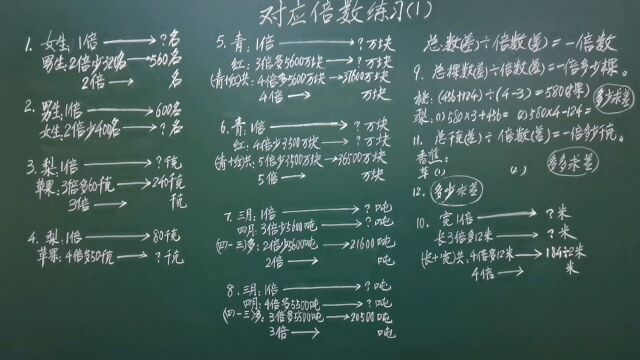 对应倍数练习(1)
1. 女生: 1倍 → ?名
男生: 2倍少320名 → 560名
2倍 → 名
2. 男生: 1倍 → 600名
女生: 2倍少400名 → ?名
3. 梨: 1倍 → ?千克
苹果: 3倍多60千克 → 240千克
3倍 → 千克
4. 梨: 1倍 → 80千克
苹果: 4倍多50千克 → ?千克
5. 青: 1倍 → ?万块
红: 3倍多5600万块 → ?万块
(青+红)共: 4倍多5600万块 → 37600万块
4倍 → 万块
6. 青: 1倍 → ?万块
红: 4倍少3500万块 → ?万块
(青+红)共: 5倍少3500万块 → 36500万块
5倍 → 万块
7. 三月: 1倍 → ?吨
四月: 3倍少5600吨 → ?吨
(四-三)多: 2倍少5600吨 → 21600吨
2倍 → 吨
8. 三月: 1倍 → ?吨
四月: 4倍多5500吨 → ?吨
(四-三)多: 3倍多5500吨 → 20500吨
3倍 → 吨
总数(差)÷倍数(差)=一倍数
9. 总棵数(差)÷倍数(差)=一倍多少棵.
桃: (456+124)÷(4-3)=580(棵)
梨: (1) 580×3+456= (2) 580×4-124=
多少求差
11. 总千克(差)÷倍数(差)=一倍多少千克.
香蕉:
苹 (1) (2)
多多求差
12. 少少求差
10. 宽1倍 → ?米
长3倍多12米 → ?米
(长+宽)共: 4倍多12米 → 184÷2米
4倍 → 米